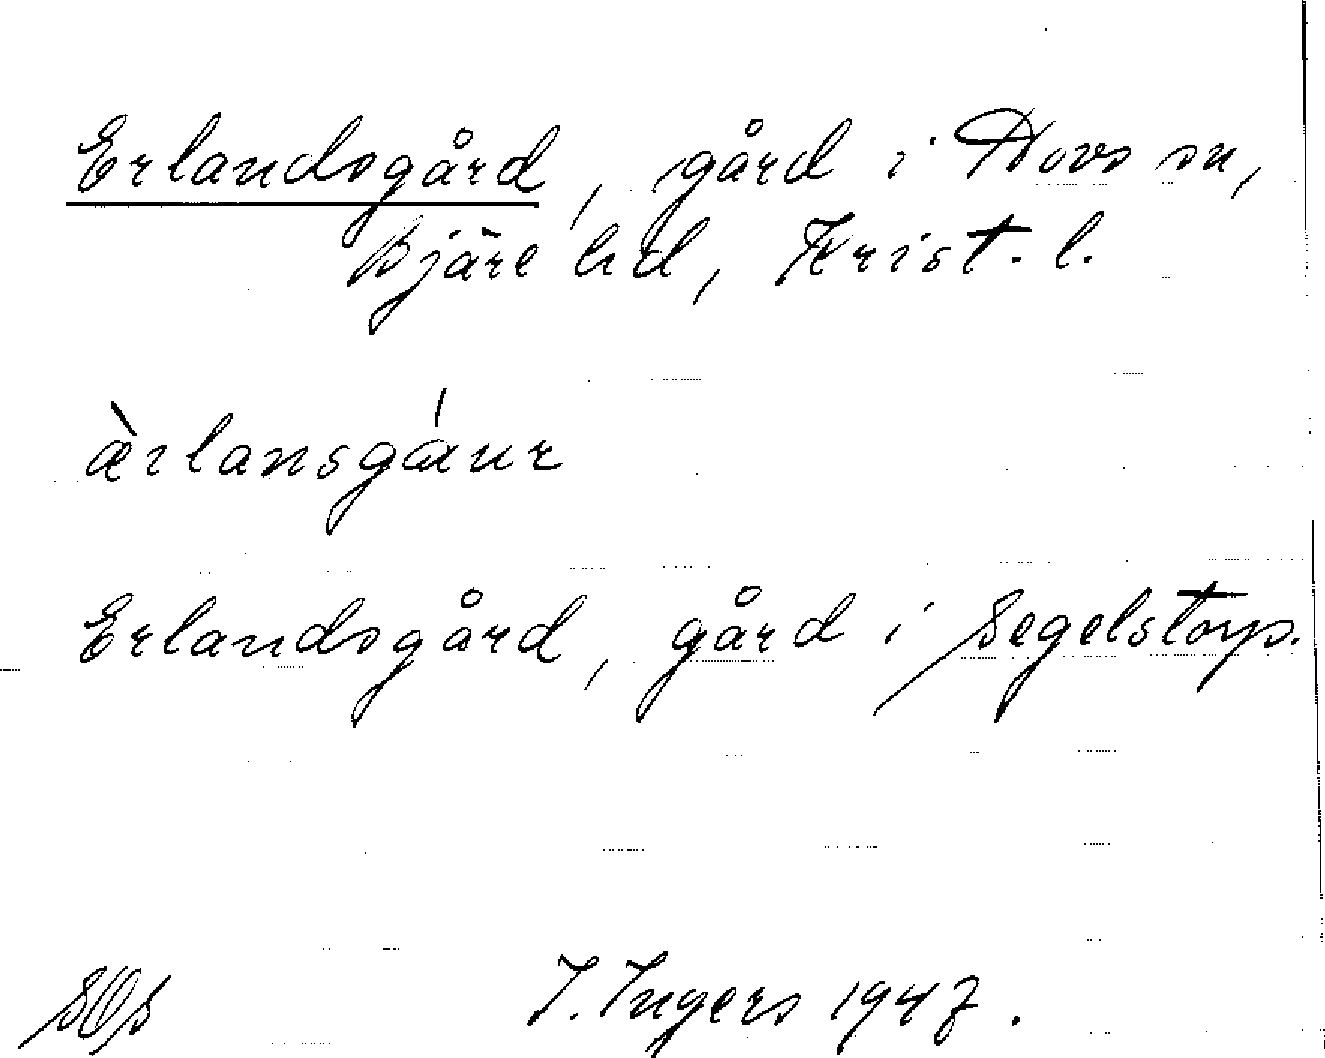 Erlandsgård, gård i Hovs sn,
Bjäre hd, Krist. l.
æ̀rlansgáur
Erlandsgård, gård i Segelstorp.
SOS I. Ingers 1947.